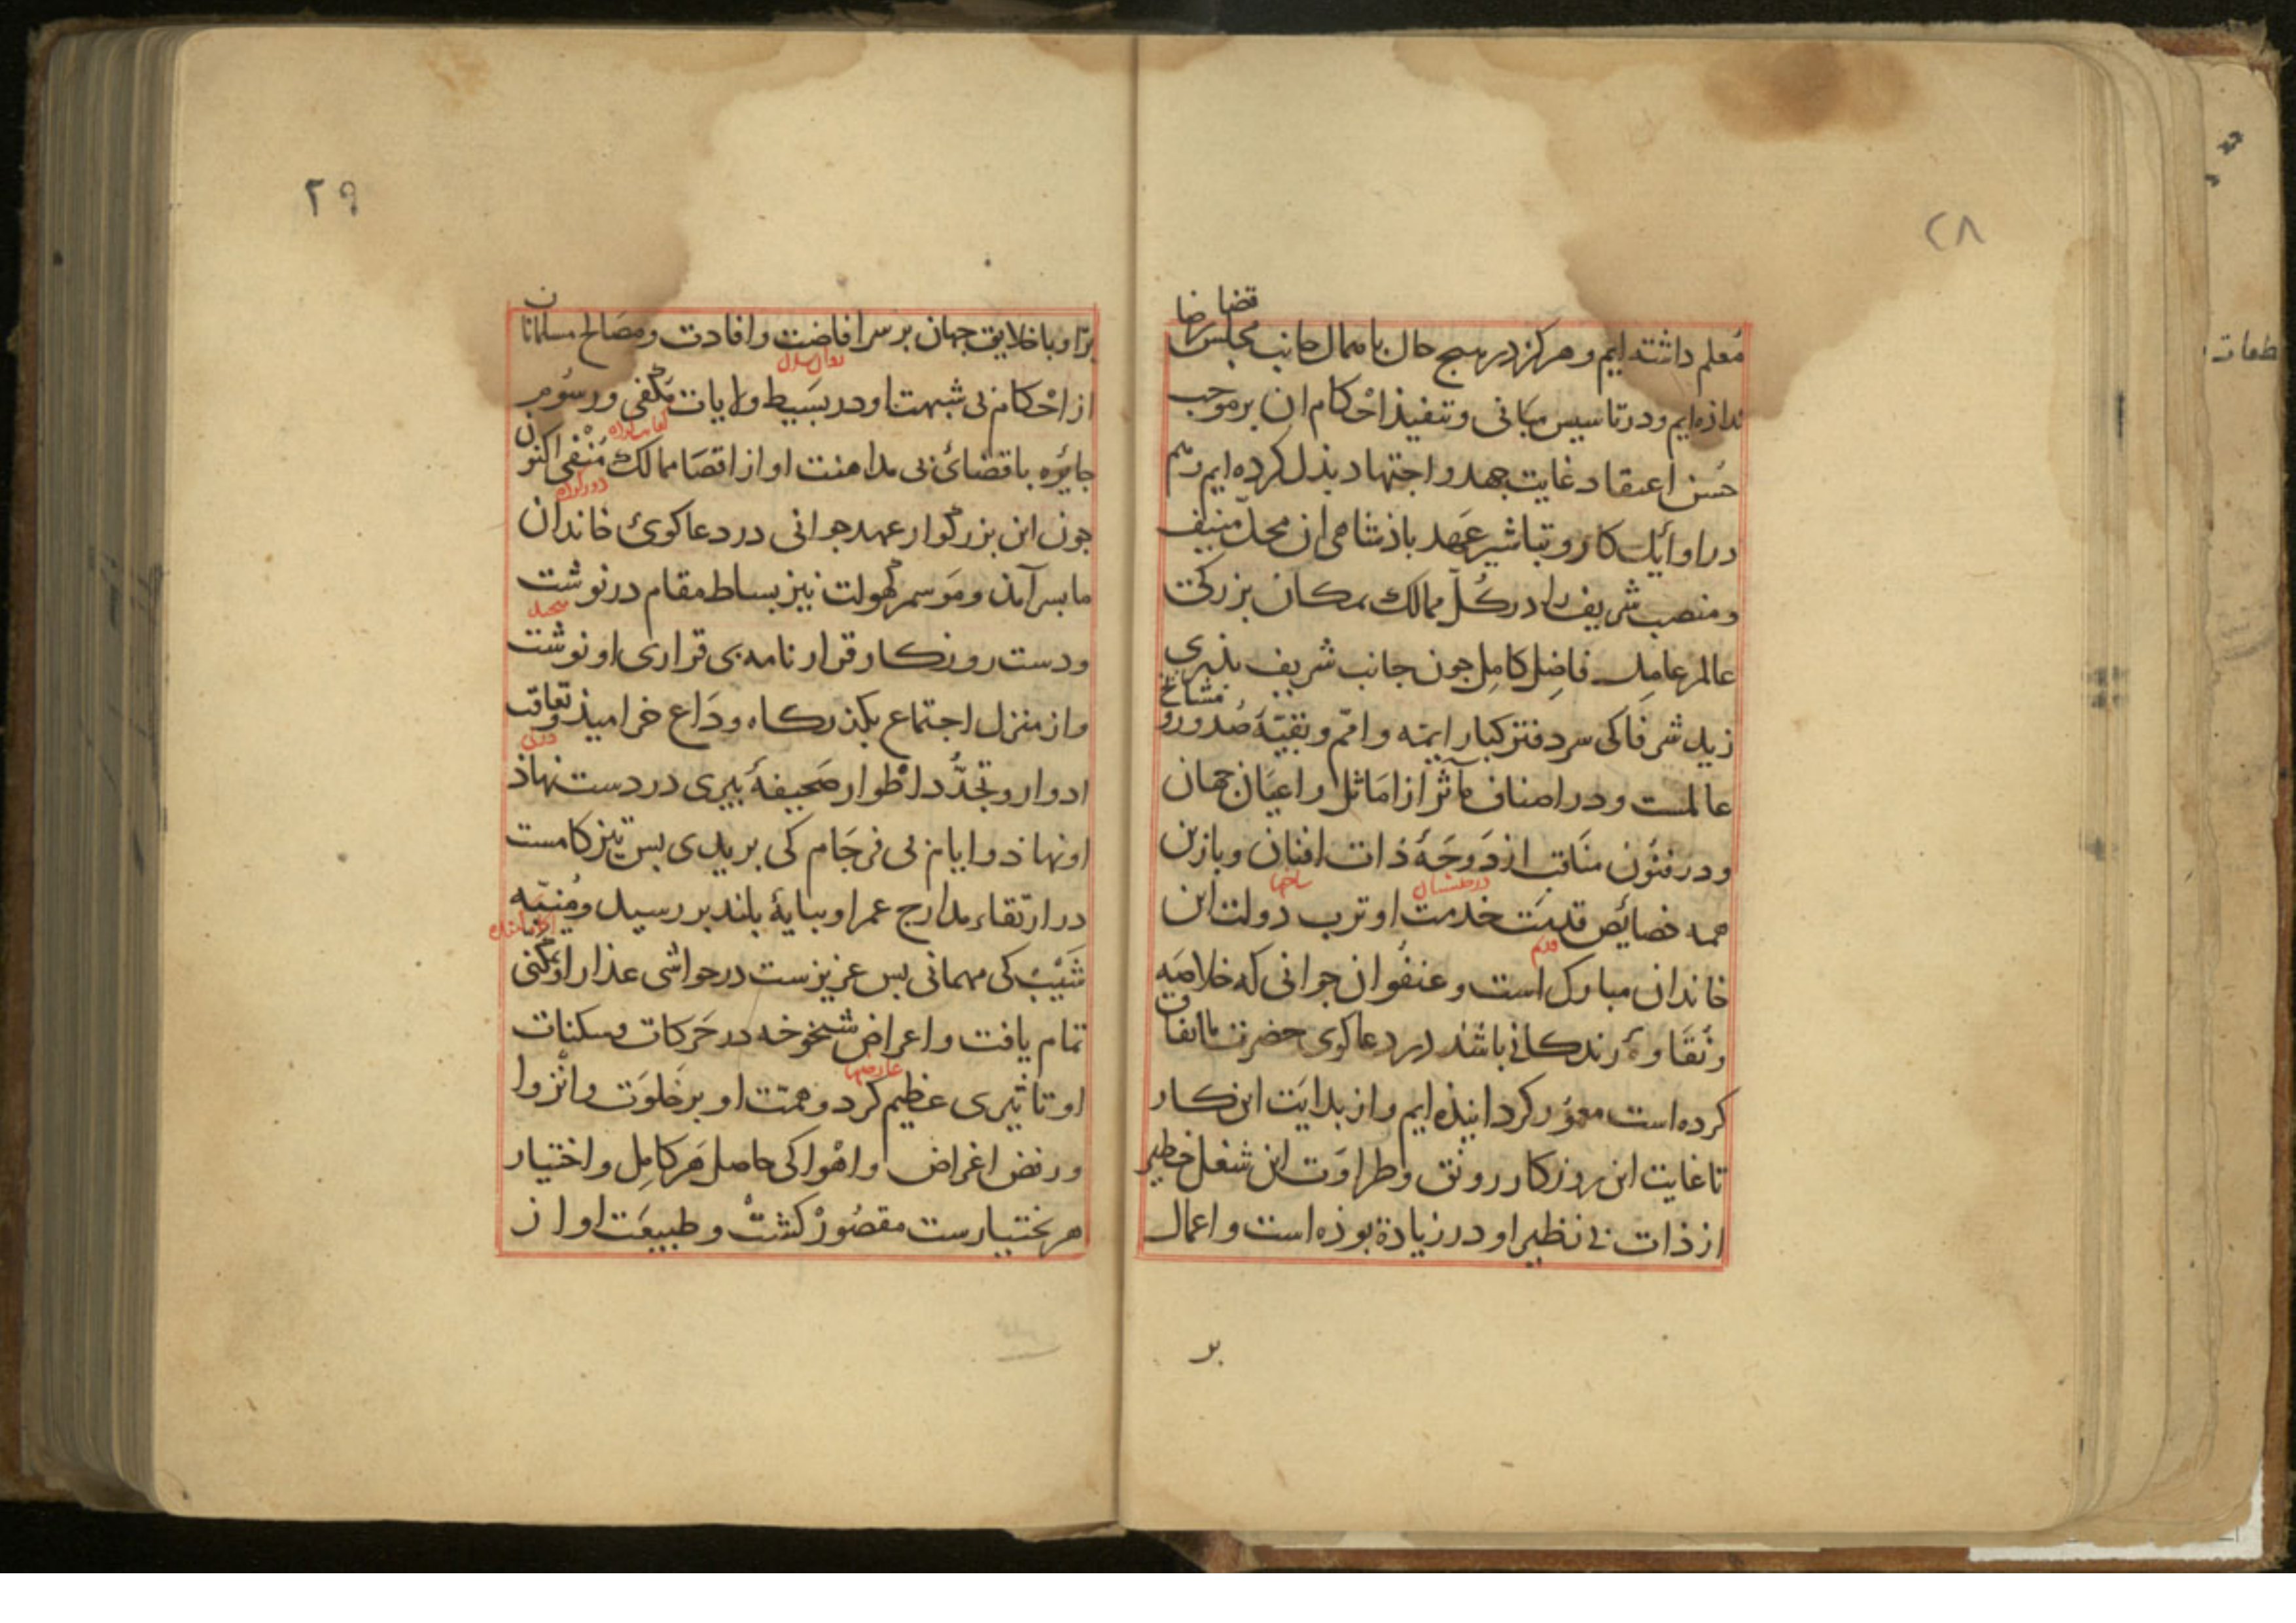 ۲۸
قضا
معلم داشته ایم و هرکز در هیچ حال با همال جانب مجلس رضا
نداذه ایم و در تاسیس مبانی و تنفیذ احکام ان بر موجب
حُسن اعتقاد غایت جهد و اجتهاد بذل کرده ایم رسم
در اوائل کار و تباشیر عَهد باذشاهی ان محلّ منیف
و منصب شریف را در کُلّ ممالک بمکان بزرکی
عالم عامل فاضِل کامِل جون جانب شریف
زید شرفا کی سر دفتر کبار ایمه و امم و بقیّهٔ صُدور و مشایخ
عالمست و در اصناف مآثر از امَاثل و اعیَان جهان
و در فنُون منَاقب از دَوحَهٔ ذات افنان و بازین
شاخها
همه خصائِص قدمَت خدمت او ترب دولت این
قدم
خاندان مبارک است و عنفُوان جوانی که خلاصَه
و نُقَاوهٔ زندکانی باشد در دعا کوی حضرت ما انفاق
کرده است معمُور کردانیذه ایم و از بدایَت این کار
تا غایت این روزکار رونق و طراوَت این شغل خطیر
از ذات بی نظیر او در زیادة بوذه است و اعمال
بر
۲۹
برّ او با خلایق جهان بر سر افاضت و افادت و مصَالح مسلمانان
از احْکام بی شبهت او در بسَیط ولایات مَکفی و رسُوم
جایٔره باقضائ بی مداهنت او از اقصَا ممالک مُنْفی اکنون
دور کرده
جون این بزرکوار عهد جوانی در دعا کوئ خاندان
ما بسر آمذ و مَوسم کُهولت نیز بساط مقام در نوشت
و دست روزکار قرار نامه بی قراری او نوشت
و از منزل اجتماع بکذرکاه ودَاع خرامیذ و تعاقب
ادوار و تجَدُّد اطْوار صَحیفهٔ پیری در دست نهاذ
او نهاذ و ایام بی فرجَام کی بریدی بس تیز کامست
در ارتقاء مدارج عمر او بپایهٔ بلند بر رسید و مُنبّه
شَیْب کی مهمانی بس عزیزست در حواشی عذار او تمکنی
تمام یافت و اعراض شیخوخه در حَرکات و سکنات
عارضها
او تاثیری عظیم کرد و همّت او بر خَلوَت و انْزوا
و رفض اغراض و اهْوا کی حاصل هَر کامِل و اختیار
هر بختیارست مقصُورْ کشت و طبیعَت او از